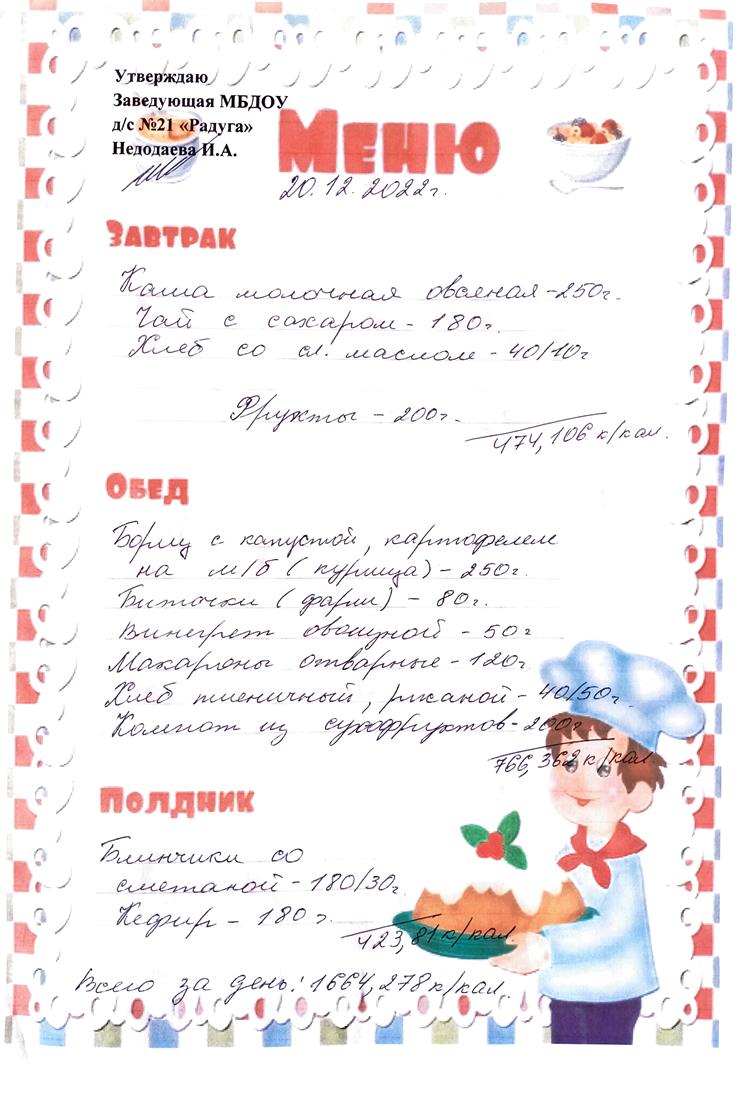 Утверждаю
Заведующая МБДОУ
д/с №21 «Радуга»
Недодаева И.А.
Меню
20.12.2022г.
Завтрак
Каша молочная овсяная - 250г.
Чай с сахаром - 180г.
Хлеб со сл. маслом - 40/10г
Фрукты - 200г.
474,106 к/кал.
Обед
Борщ с капустой, картофелем
на м/б (курица) - 250г.
Биточки (фарш) - 80г.
Винегрет овощной - 50г
Макароны отварные - 120г.
Хлеб пшеничный, ржаной - 40/50г.
Компот из сухофруктов - 200г
766,362 к/кал
Полдник
Блинчики со
сметаной - 180/30г.
Кефир - 180г.
423,81 к/кал.
Всего за день: 1664,278 к/кал.